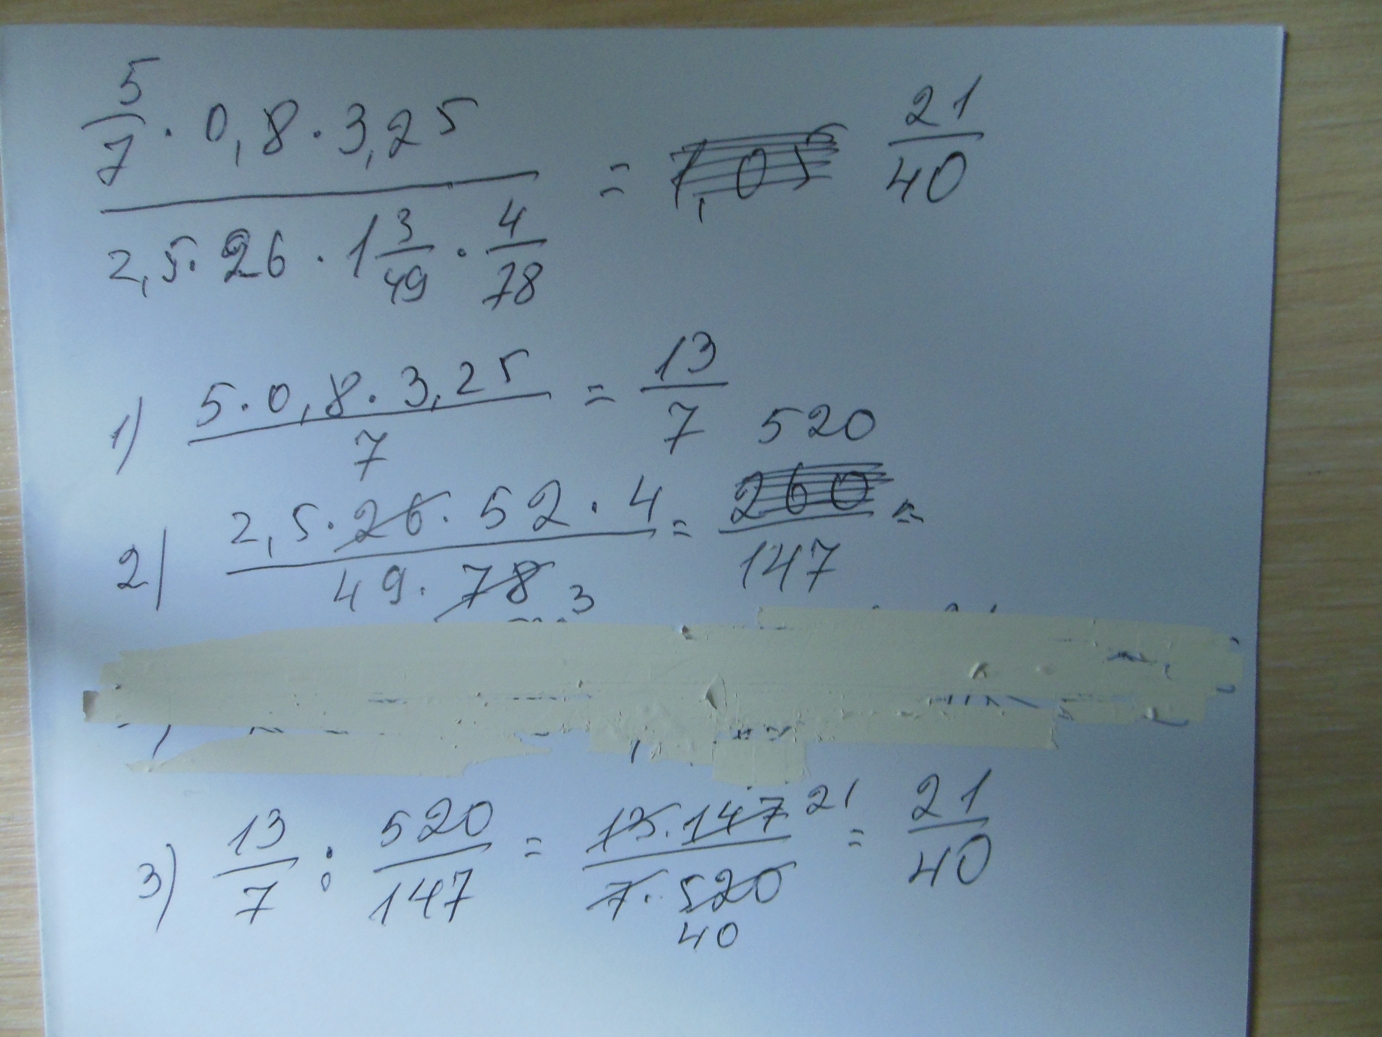 5/7 · 0,8 · 3,25 / 2,5 · 26 · 1 3/49 · 4/78 = 21/40
1) 5 · 0,8 · 3,25 / 7 = 13/7
2) 2,5 · 26 · 52 · 4 / 49 · 78 3 = 520/147 =
3) 13/7 : 520/147 = 13 · 147 21 / 7 · 520 40 = 21/40